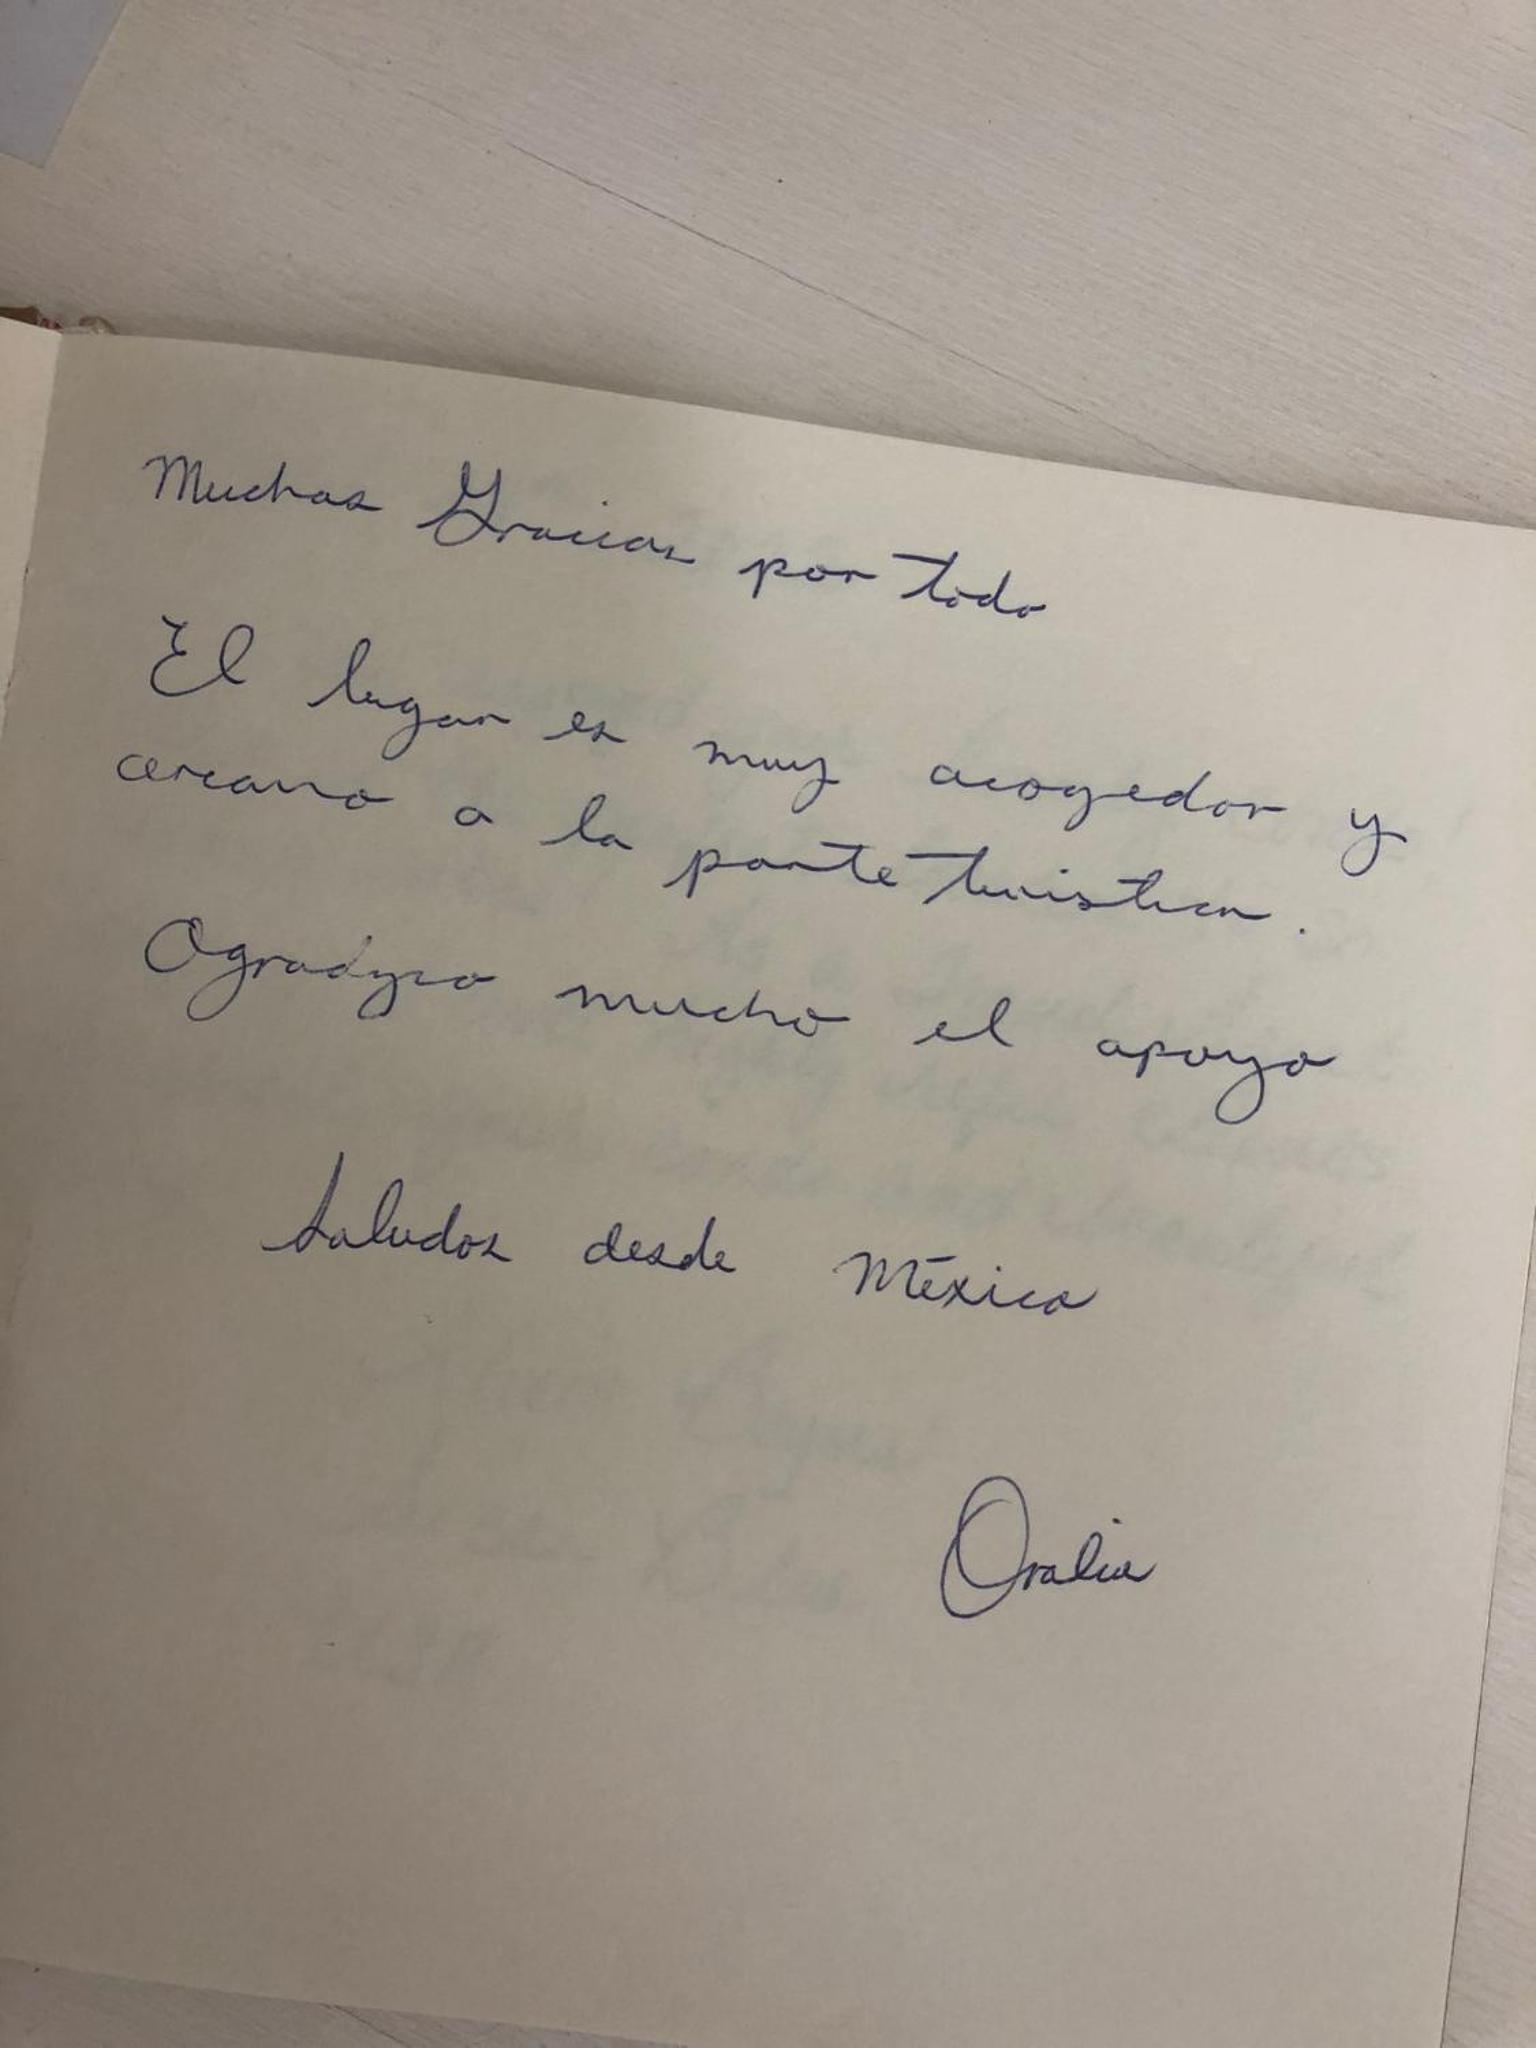 Muchas Gracias por todo
El lugar es muy acogedor y
cercano a la parte turistica.
Agradezco mucho el apoyo
Saludos desde México
Oralia